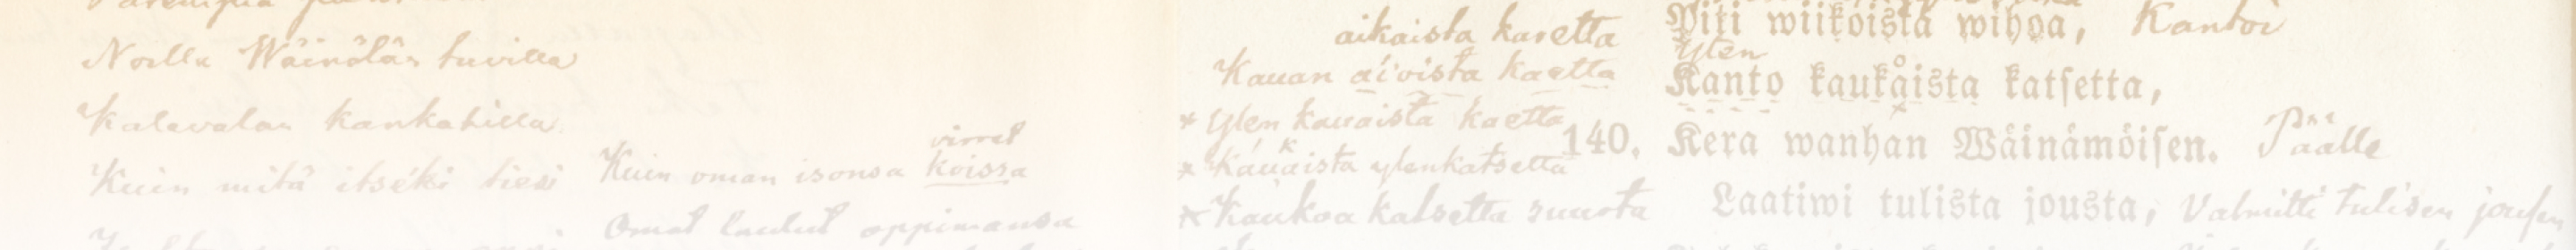 Noilla Wäinölän tuvilla
Kalevalan kankahilla.
Kuin mitä itseki tiesi
virret
Kuin oman isonsa koissa
Omat laulut oppimansa
aikaista karetta
Kauan aivoista kaetta
* Ylen kauaista kaetta
* Kauaista ylenkatsetta
* Kaukoa katsetta suurta
Piti wiikoista wihoa, Kantoi
Ylen
Kanto kaukaista katsetta,
140. Kera wanhan Wäinämöisen. Päälle
Laatiwi tulista jousta, Valmitti tulisen jousen